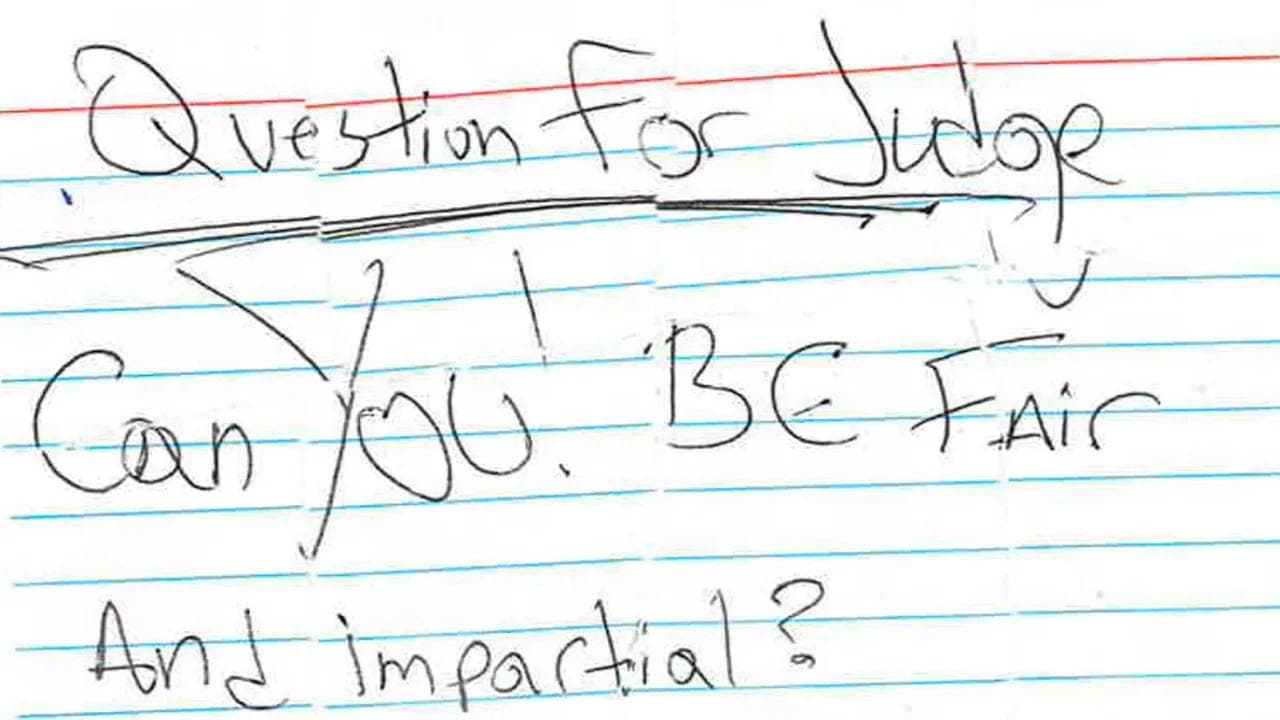 Question For Judge
Can You! BE FAir
And impartial?